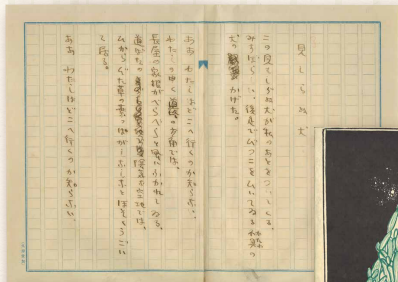 見しらぬ犬
この見もしらぬ犬が私のあとをついてくる、
みすぼらしい、後足でびつこをひいてゐる
犬の かげだ。
ああ、わたしはどこへ行くのか知らない、
わたしのゆく
長屋の家根がべらべらと風にふかれてゐる、
道ばたの
ひからびた草の葉つぱがしなしなとほそくうごい
て居る。
ああ わたしはどこへ行くのか知らない、